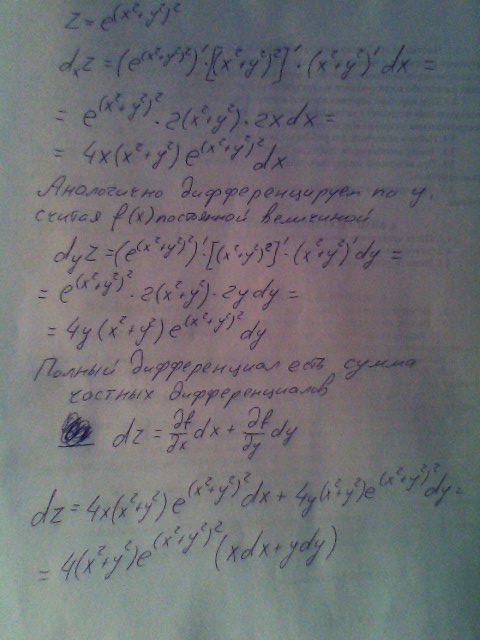 z = e^(x²+y²)²
dₓz = (e^(x²+y²)²)' · [(x²+y²)²]' · (x²+y²)' dx =
= e^(x²+y²)² · 2(x²+y²) · 2xdx =
= 4x(x²+y²) e^(x²+y²)² dx
Аналогично дифференцируем по y,
считая f(x) постоянной величиной
d_y z = (e^(x²+y²)²)' · [(x²+y²)²]' · (x²+y²)' dy =
= e^(x²+y²)² · 2(x²+y²) · 2ydy =
= 4y(x²+y²) e^(x²+y²)² dy
Полный дифференциал есть сумма
частных дифференциалов
dz = ∂f/∂x dx + ∂f/∂y dy
dz = 4x(x²+y²) e^(x²+y²)² dx + 4y(x²+y²) e^(x²+y²)² dy =
= 4(x²+y²) e^(x²+y²)² (xdx+ydy)